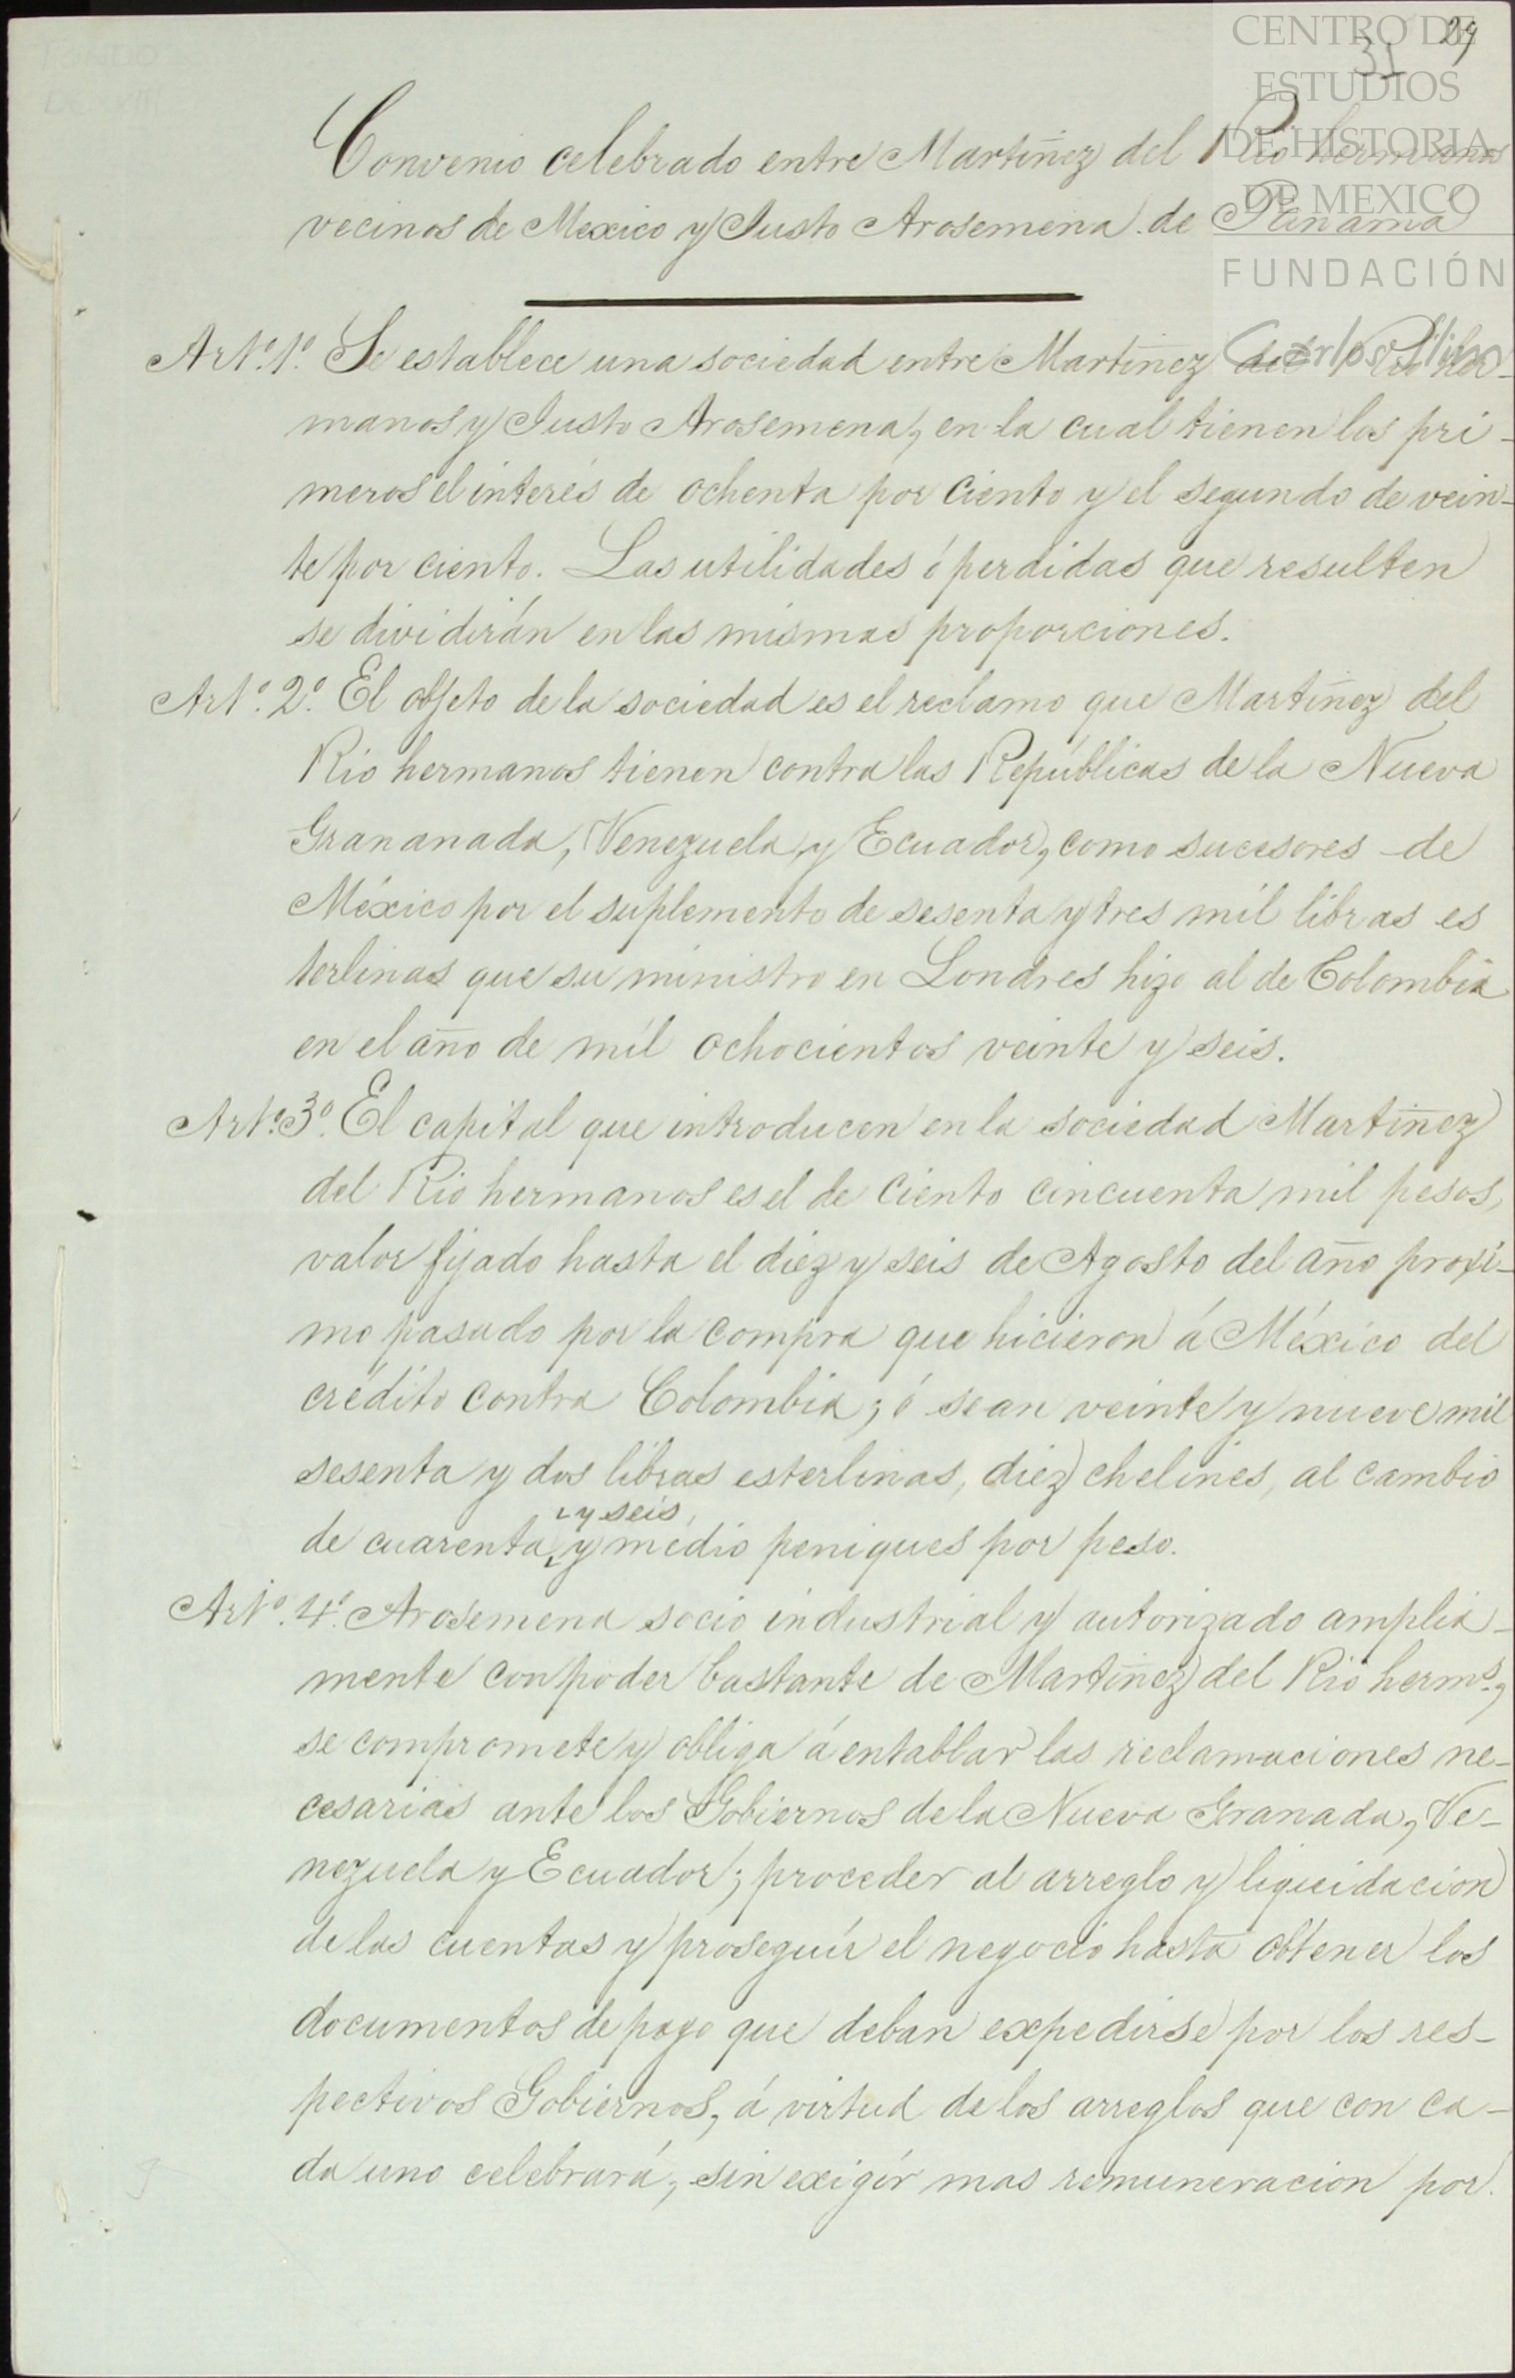 CENTRO DE
ESTUDIOS
DE HISTORIA
DE MEXICO
FUNDACIÓN
Carlos Slim
29
31
Convenio celebrado entre Martiñez del Rio hermanos
vecinos de Mexico y Justo Arosemena de Panamá
Arto. 1o. Se establece una sociedad entre Martiñez del Rio her-
manos y Justo Arosemena, en la cual tienen los pri-
meros el interés de ochenta por ciento y el segundo de vein-
te por ciento. Las utilidades ó perdidas que resulten
se dividirán en las mismas proporciones.
Arto. 2o. El objeto de la sociedad es el reclamo que Martiñez del
Rio hermanos tienen contra las Repúblicas de la Nueva
Grananada, Venezuela, y Ecuador, como sucesores de
México por el suplemento de sesenta y tres mil libras es
terlinas que su ministro en Londres hizo al de Colombia
en el año de mil ochocientos veinte y seis.
Arto. 3o. El capital que introducen en la sociedad Martiñez
del Rio hermanos es el de ciento cincuenta mil pesos,
valor fijado hasta el diez y seis de Agosto del año proxi-
mo pasado por la compra que hicieron á México del
crédito contra Colombia; ó sean veinte y nueve mil
sesenta y dos libras esterlinas, diez chelines, al cambio
y seis,
de cuarenta y medio peniques por peso.
Arto. 4o. Arosemena socio industrial y autorizado amplia-
mente con poder bastante de Martiñez del Rio herms.,
se compromete y obliga á entablar las reclamaciones ne-
cesarias ante los Gobiernos de la Nueva Granada, Ve-
nezuela y Ecuador; proceder al arreglo y liquidacion
de las cuentas y proseguir el negocio hasta obtener los
documentos de pago que deban expedirse por los res-
pectivos Gobiernos, á virtud de los arreglos que con ca-
da uno celebrará, sin exigir mas remuneracion por